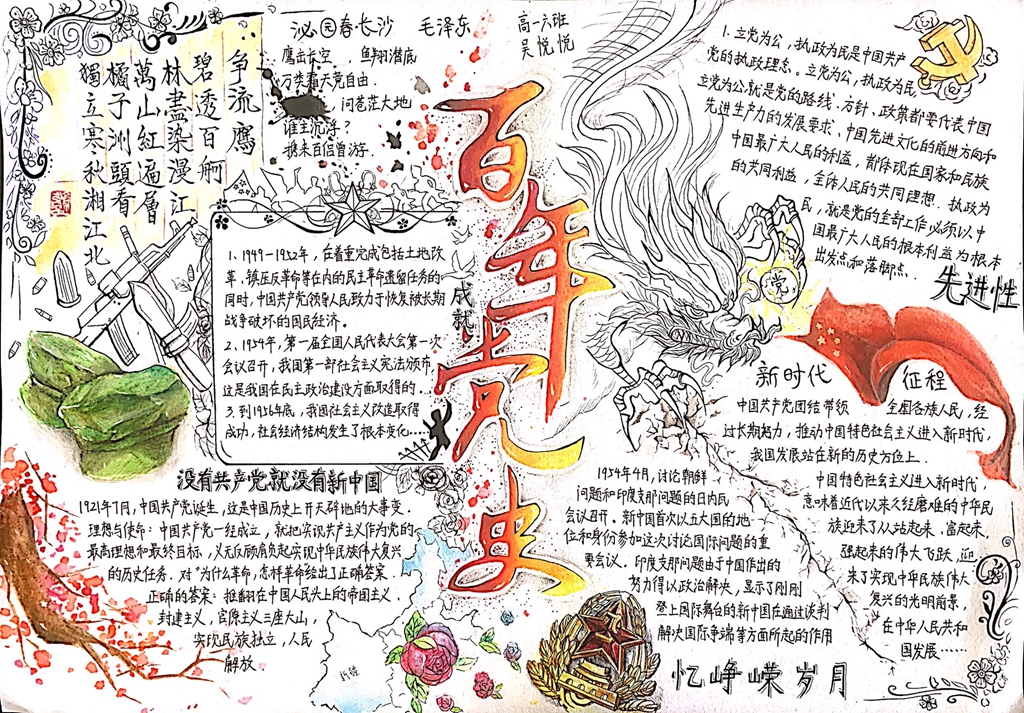 争流鹰
碧透百舸
林盡染漫江
萬山紅遍層
橘子洲頭看
獨立寒秋湘江北
泌园春长沙 毛泽东
高一六班
吴悦悦
鹰击长空, 鱼翔潜底
万类霜天竞自由.
问苍茫大地
谁主沉浮?
携来百侣曾游.
百年党史
成就
1. 1949-1952年, 在着重完成包括土地改
革、镇压反革命等在内的民主革命遗留任务的
同时, 中国共产党领导人民致力于恢复被长期
战争破坏的国民经济。
2、1954年, 第一届全国人民代表大会第一次
会议召开, 我国第一部社会主义宪法颁布,
这是我国在民主政治建设方面取得的.
3. 到1956年底, 我国社会主义改造取得
成功, 社会经济结构发生了根本变化……
没有共产党就没有新中国
1921年7月, 中国共产党诞生, 这是中国历史上开天辟地的大事变.
理想与使命: 中国共产党一经成立, 就把实现共产主义作为党的
最高理想和最终目标, 义无反顾肩负起实现中华民族伟大复兴
的历史任务. 对“为什么革命, 怎样革命给出了正确答案.
正确的答案: 推翻在中国人民头上的帝国主义、
封建主义, 官僚主义三座大山,
实现民族独立, 人民
解放
1. 立党为公, 执政为民是中国共产
党的执政理念。立党为公, 执政为民
立党为公就是党的路线、方针、政策都要代表中国
先进生产力的发展要求、中国先进文化的前进方向和
中国最广大人民的利益, 都体现在国家和民族
的共同利益, 全体人民的共同理想. 执政为
民, 就是党的全部工作必须以中
国最广大人民的根本利益为根本
出发点和落脚点.
先进性
党
新时代 征程
中国共产党团结带领 全国各族人民, 经
过长期努力, 推动中国特色社会主义进入新时代,
我国发展站在新的历史方位上.
中国特色社会主义进入新时代,
意味着近代以来久经磨难的中华民
族迎来了从站起来、富起来
强起来的伟大飞跃, 迎
来了实现中华民族伟大
复兴的光明前景,
在中华人民共和
国发展……
1954年4月, 讨论朝鲜
问题和印度那问题的日内瓦
会议召开. 新中国首次以五大国的地
位和身份参加这次讨论国际问题的重
要会议. 印度支那问题由于中国作出的
努力得以政治解决, 显示了刚刚
登上国际舞台的新中国在通过谈判
解决国际争端等方面所起的作用
忆峥嵘岁月